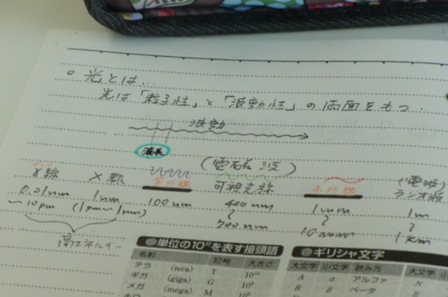 ○ 光とは…
光は「粒子性」と「波動性」の両面をもつ.
波動
波長
(電磁波)
γ線 X線 紫外線 可視光線 赤外線 (電波)
ラジオ波
0.01nm 1nm 100nm 400nm 1mm 1m
~10pm (1pm~1nm) 〜 〜 〜
700nm 1km
高エネルギー
●単位の10ⁿを表す接頭語 ●ギリシャ文字
名称 記号 大きさ 大文字 小文字 読み方 大文字
テラ (tera) T 10¹² A α アルファ N
ギガ (giga) G 10⁹ B β ベータ
メガ (mega) M